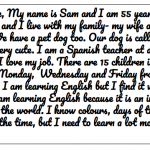 , My name is Sam and I am 55 year
and I live with my family- my wife a
We have a pet dog too. Our dog is call
ery cute. I am a Spanish teacher at a
I love my job. There are 15 children i
Monday, Wednesday and Friday fro
I am learning English but I find it v
am learning English because it is an i
the world. I know colours, days of t
the time, but I need to learn a lot m